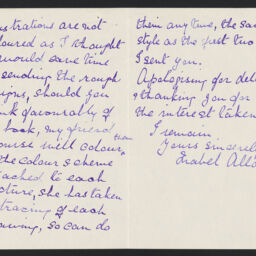 ustrations are not
loured as I thought
would save time
sending the rough
igns, should you
nk favourably of
book, my friend
ourse will colour,
the colour scheme
ached to each
cture, she has taken
tracing of each
awing, so can do
them any time, the sa
style as the first two
I sent you.
Apologising for del
& thanking you for
the interest taken
I remain
Yours sincerel
Isabel All